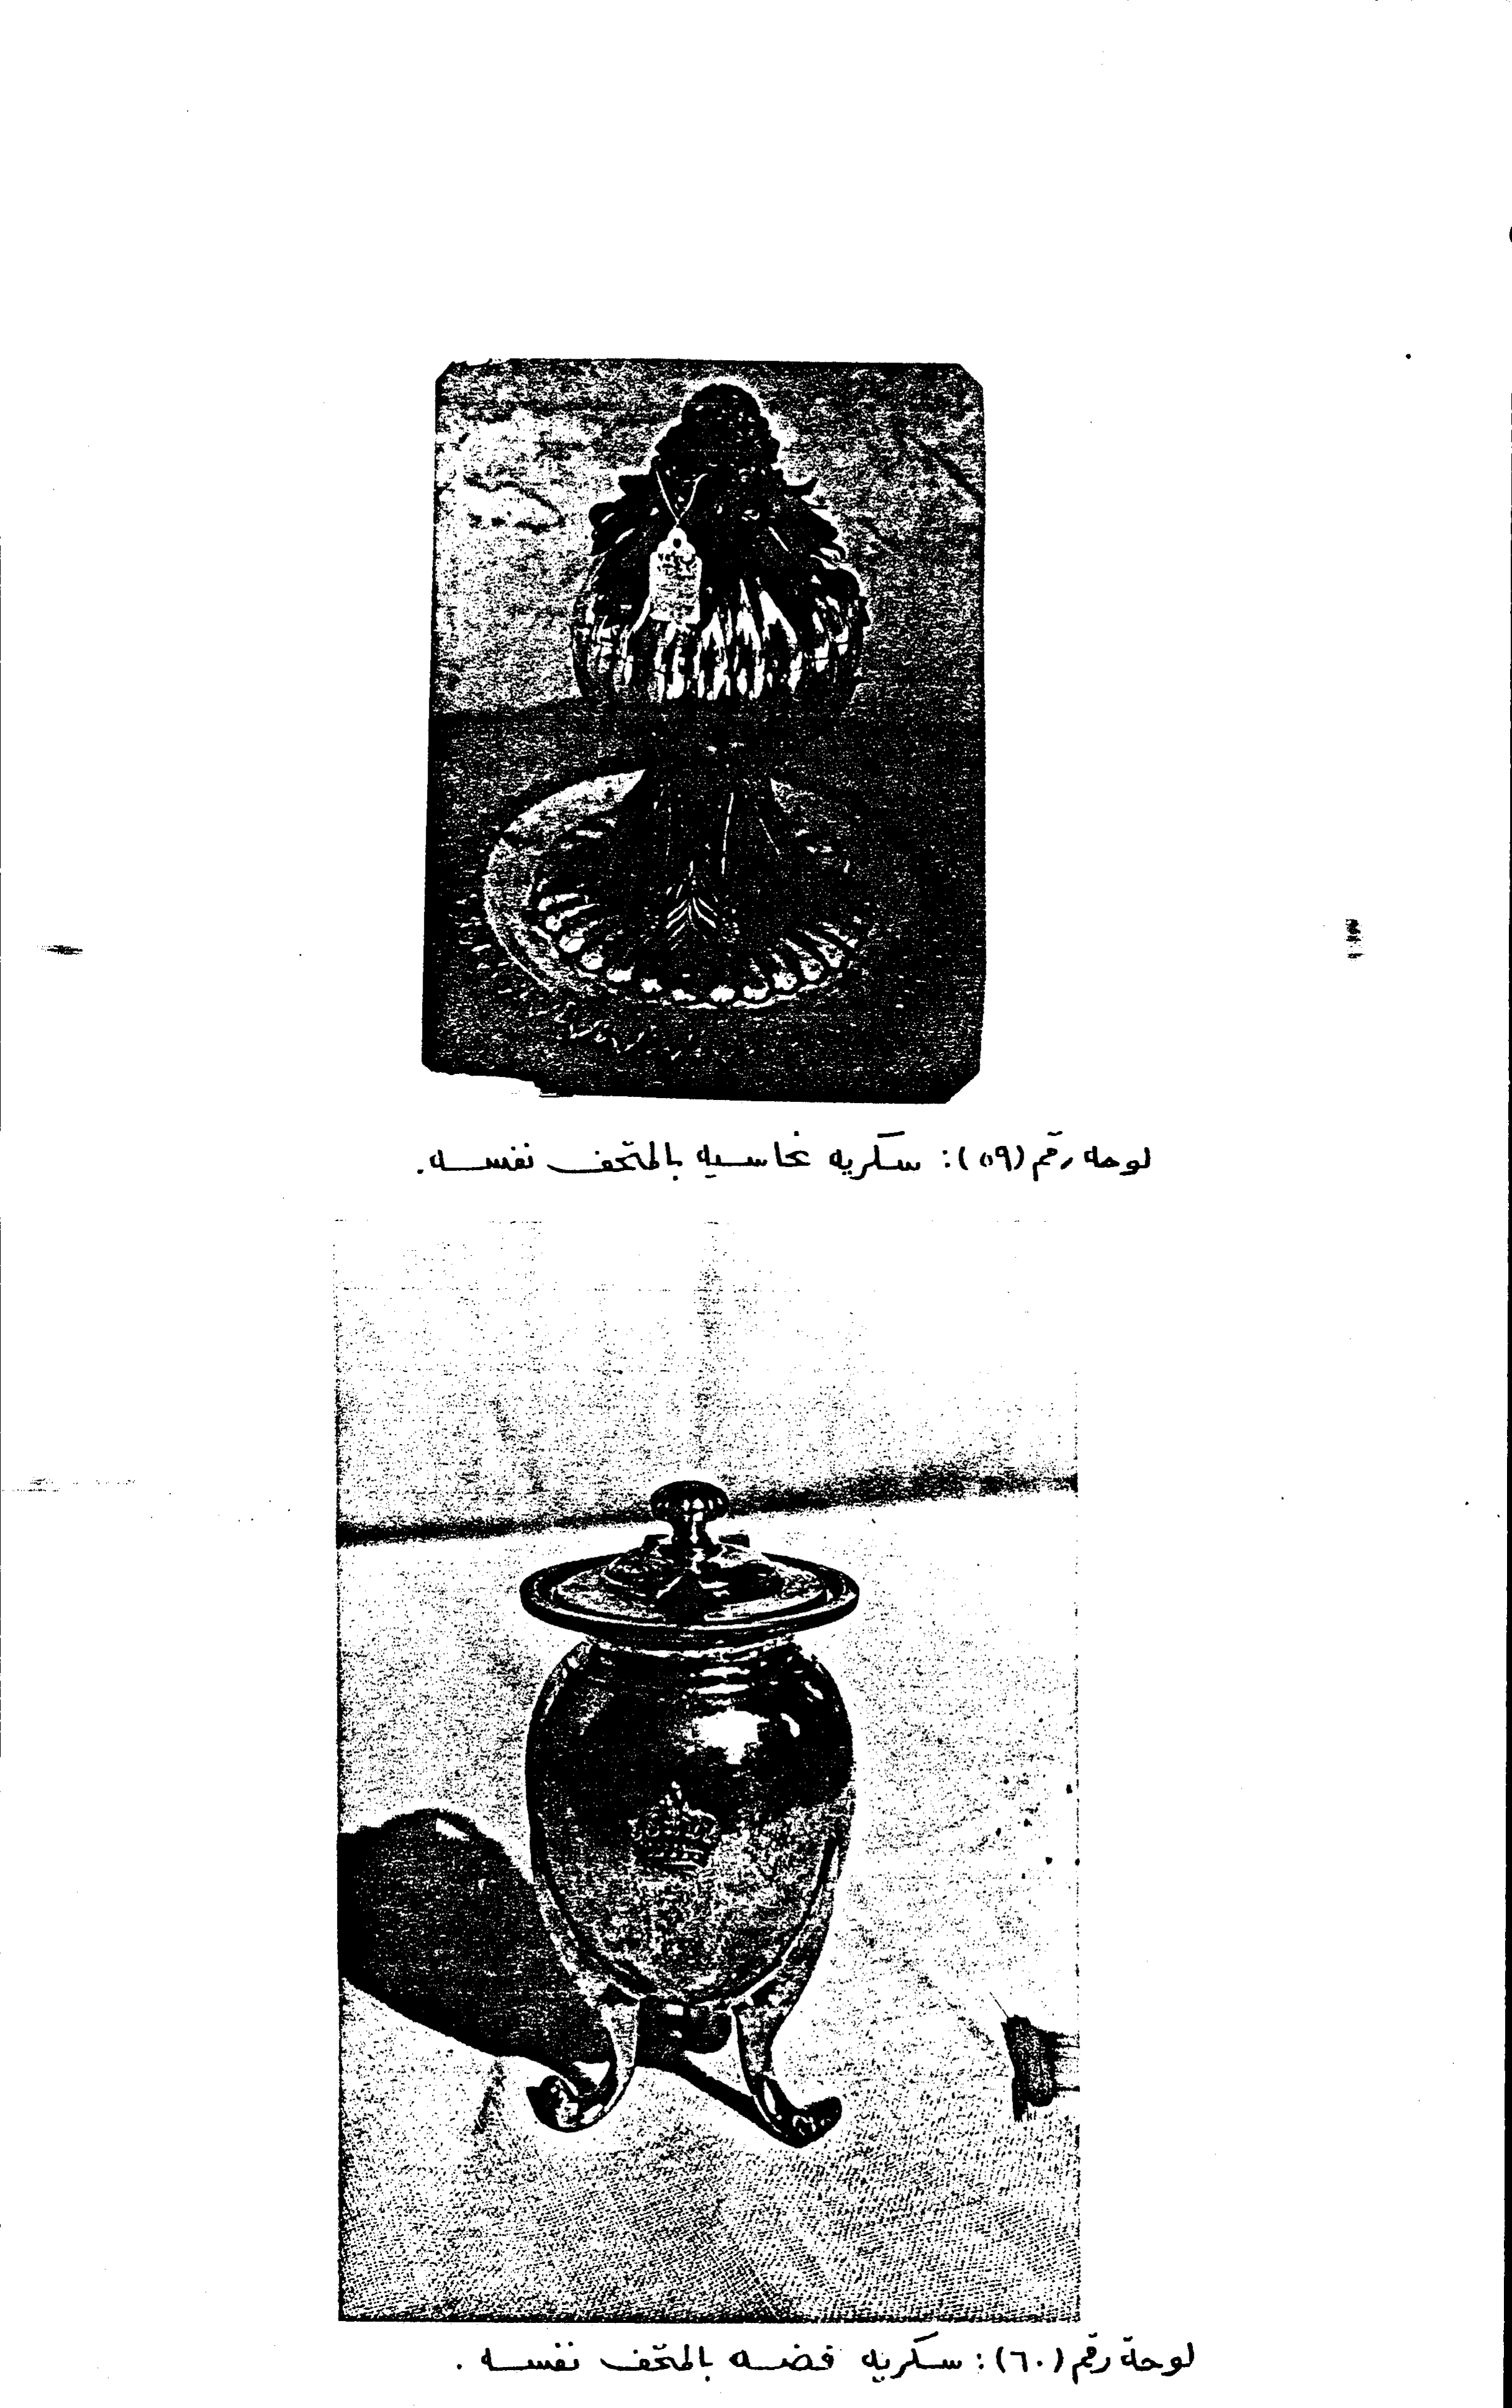 لوحه رقم (٥٩): سكريه نحاسيه بالمتحف نفسه.
لوحة رقم (٦٠): سكريه فضه بالمتحف نفسه.